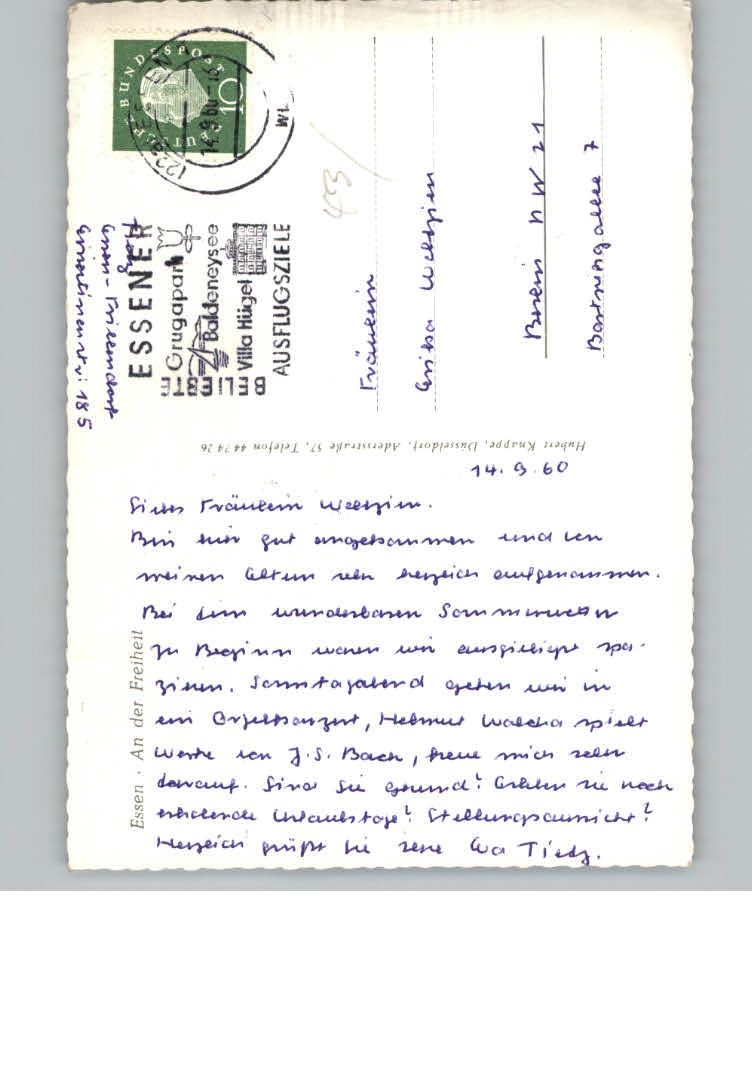 DEUTSCHE BUNDESPOST
10
ESSEN
14.9.60
ESSENER
Grugapark
Baldeneysee
Villa Hügel
BELIEBTE
AUSFLUGSZIELE
185
43
Fräulein
Erika Weltzien
Berlin NW 21
7
Hubert Knappe, Düsseldorf, Adersstraße 57, Telefon 44 74 26
Essen · An der Freiheit
14. 9. 60
Liebes Fräulein Weltzien.
Bin hier gut angekommen und von
meinen Eltern sehr herzlich aufgenommen.
Bei dem wunderbaren Sommerwetter
zu Beginn waren wir ausgiebig spa-
zieren. Sonntagabend gehen wir in
ein Orgelkonzert, Helmut Walcha spielt
Werke von J. S. Bach, freue mich sehr
darauf. Sind Sie gesund? Erleben Sie noch
erholende Urlaubstage? Stellungsaussicht?
Herzlich grüßt Sie Eva Tietz.